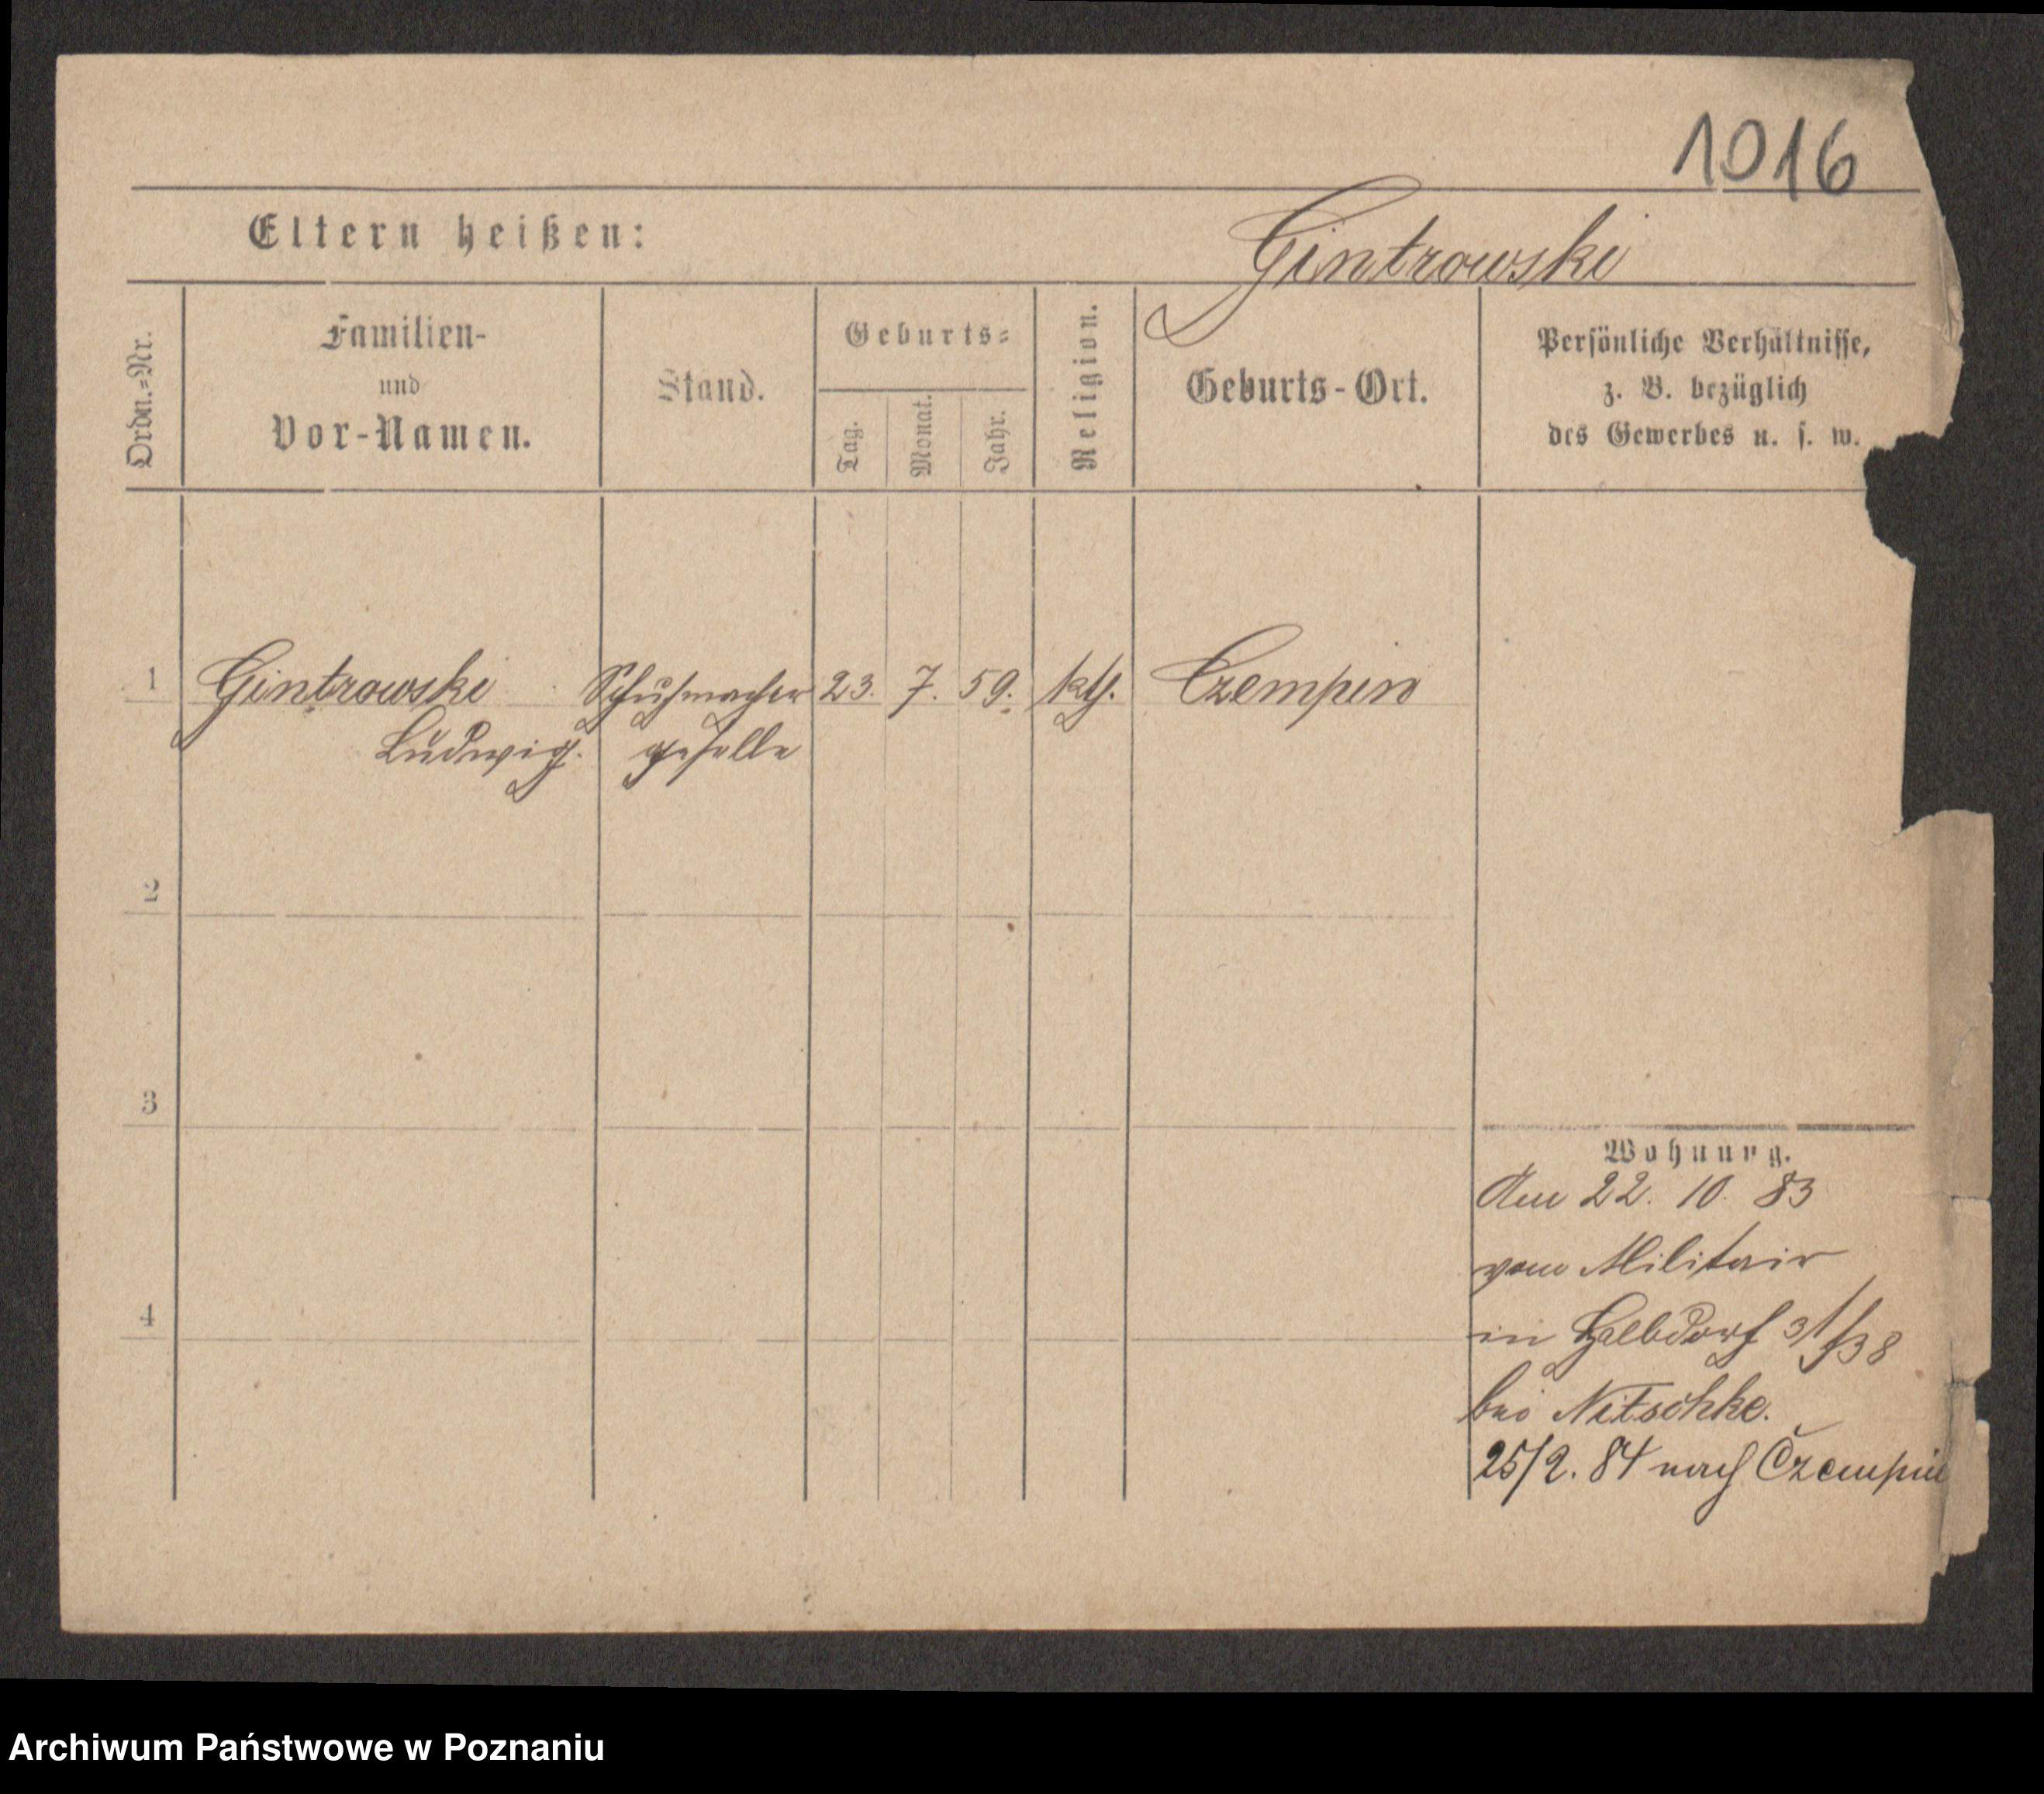 1016
Eltern heißen:
Gintrowski
Ordn.=Nr.
Familien-
und
Vor-Namen.
Stand.
Geburts=
Tag.
Monat.
Jahr.
Religion.
Geburts-Ort.
Persönliche Verhältnisse,
z. B. bezüglich
des Gewerbes u. s. w.
1 Gintrowski Schuhmacher 23. 7. 59. kth. Czempin
Ludwig. geselle
2
3
Wohnung.
Am 22. 10. 83
vom Militair
4
in Halbdorf 31/38
bei Nitschke.
25/2. 84 nach Czempin
Archiwum Państwowe w Poznaniu